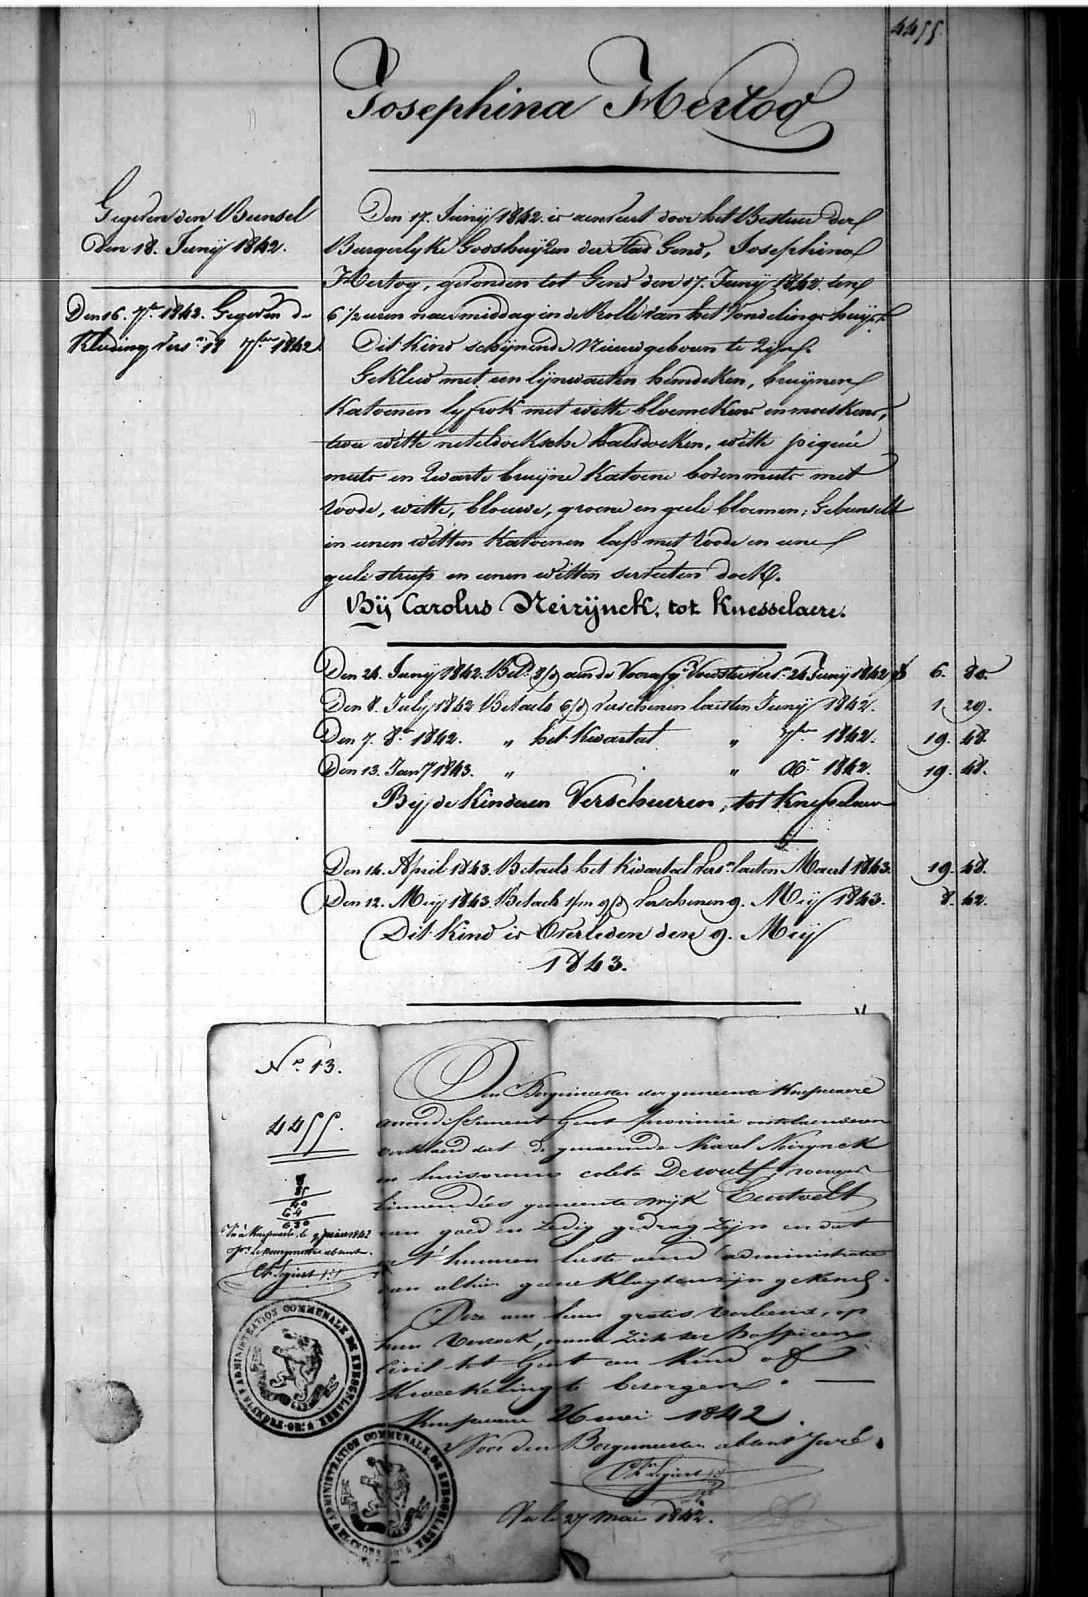 4455
Josephina Hertog
Gegeven den Bunsel
den 18. Junij 1842.
Den 16. 7br 1842. Gegeven de
Kleeding vers. 18 7ber 1842
Den 17. Junij 1842. is aenveert door het Bestuer der
Burgerlyke Godshuijzen der Stad Gend, Josephina
Hertog, gevonden tot Gend den 17. Junij 1842. ten
6 1/2 uren naermiddag in de Rolle van het Vondelingshuijs.
Dit Kind schijnende Nieuwgeboren te Zijn.
Gekleed met een lijnwaeten hemdeken, bruijnen
Katoenen lyfrok met witte bloemekens en moeskens,
twee witte neteldoeksche halsdoeken, witte piquée
muts en Zwarte bruyne Katoene bovenmuts met
roode, witte, blauwe, groene en geele bloemen; Gebunselt
in eenen witten Katoenen lap met Roode en eene
geele streep en eenen witten servieten doek.
Bij Carolus Neirijnck. tot Knesselaere.
Den 24. Junij 1842. Bet. 8/d aen de Voorafg. Voedster vers. 24 Junij 1842 6. 80.
Den 8. July 1842 Betaeld 6/d verschenen laesten Junij 1842. 1. 29.
Den 7. 8br 1842. " het Kwartael " 7ber 1842. 19. 48.
Den 13. Jany 1843. " " Xbr 1842. 19. 48.
Bij de Kinderen Verscheuren, tot Knesselaere
Den 14. April 1843. Betaeld het Kwartael vers. laesten Maert 1843. 19. 48.
Den 12. Meij 1843. Betaelt 1/m 9/d verschenen 9. Meij 1843. 8. 42.
Dit Kind is Overleden den 9. Meij
1843.
No. 13.
4455.
Den Borgmeester der gemeente Knesselaere
arrondissement Gent provincie oostvlaenderen
verklaerd dat de genaemde Karel Neirynck
en huisvrouw coleta Dewulf woenende
binnen dées gemeente wijk Eentvelt
van goed en Zedig gedrag Zijn en dat
van alhier geene klagten zijn gekend.
Deze aen hun gratis verleend, op
hun Verzoek, omme Zich ter hospicen
Civil tot Gent een Kind of
Kweekeling te bezorgen.
Knesselaere 26 mei 1842.
Voor den Borgmeester absent
Vu le 27 mai 1842.
ADMINISTRATION COMMUNALE DE KNESSELAERE
ADMINISTRATION COMMUNALE DE KNESSELAERE